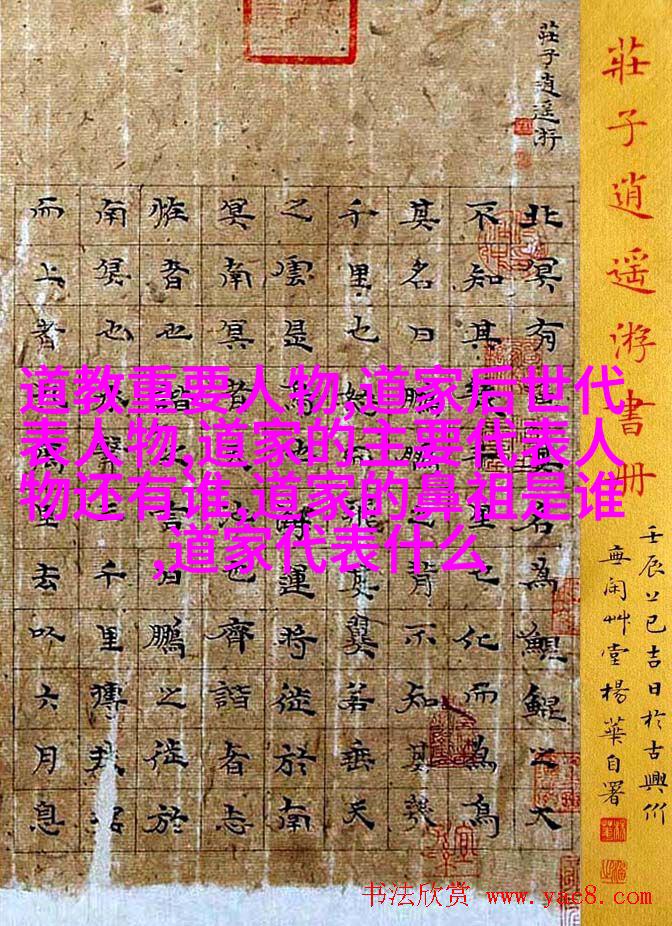 莊子逍遥游書册
壬辰上巳吉日於古興
無闲艸堂楊華自署
莊子逍遥游
北冥有魚其名為鯤鯤之大
不知其幾千里也化而為鳥
其名曰鵬鵬之背不知其幾
千里也怒而飛其翼若垂天
之雲是鳥也海運將徙於南
冥南冥者天池也齊諧者志
怪者也諧之言曰鵬之徙於
南冥也水擊三千里摶扶搖
而上者九萬里去以六月息
道教重要人物,道家后世代
表人物,道家的主要代表人
物还有谁,道家的鼻祖是谁
,道家代表什么
书法欣赏 www.yac8.com